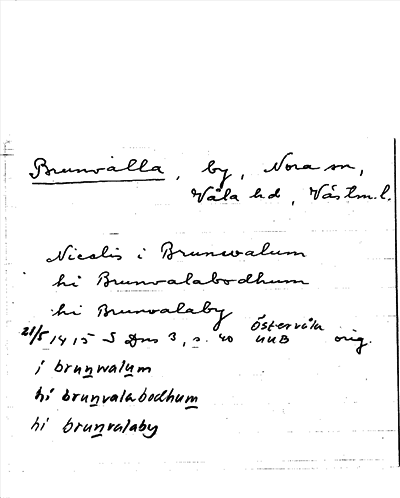 Brunvålla, by, Nora sn,
Våla hd, Västm. l.
Nicolis i Brunwalum
hi Brunvalabodhum
hi Brunvalaby
21/5 1415 S Dns 3, s. 40 Östervåla UUB orig.
i brunwalum
hi brunvalabodhum
hi brunvalaby